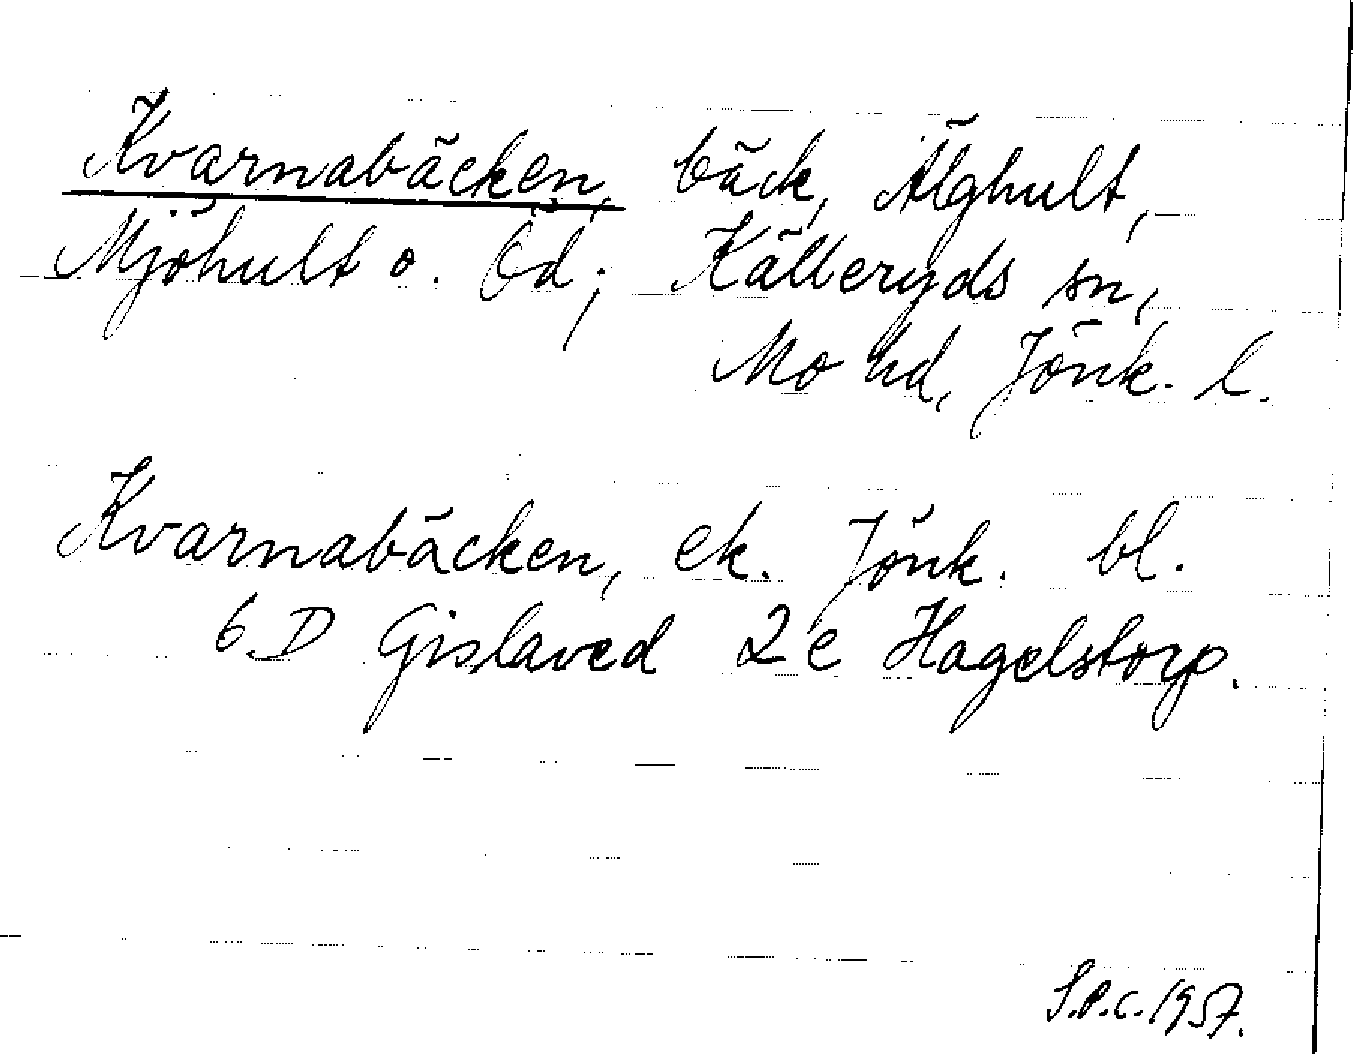 Kvarnabäcken, bäck, Älghult,
Mjöhult o. Öd; Källeryds sn,
Mo hd, Jönk. l.
Kvarnabäcken, ek. Jönk. bl.
6 D Gislaved 2 e Hagelstorp.
S.P.C. 1957.